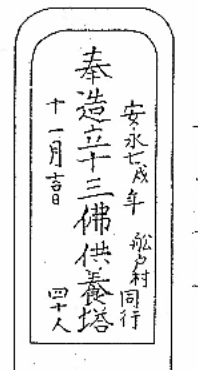 安永七戌年 舩戸村同行
奉造立十三佛供養塔
十一月吉日 四十人